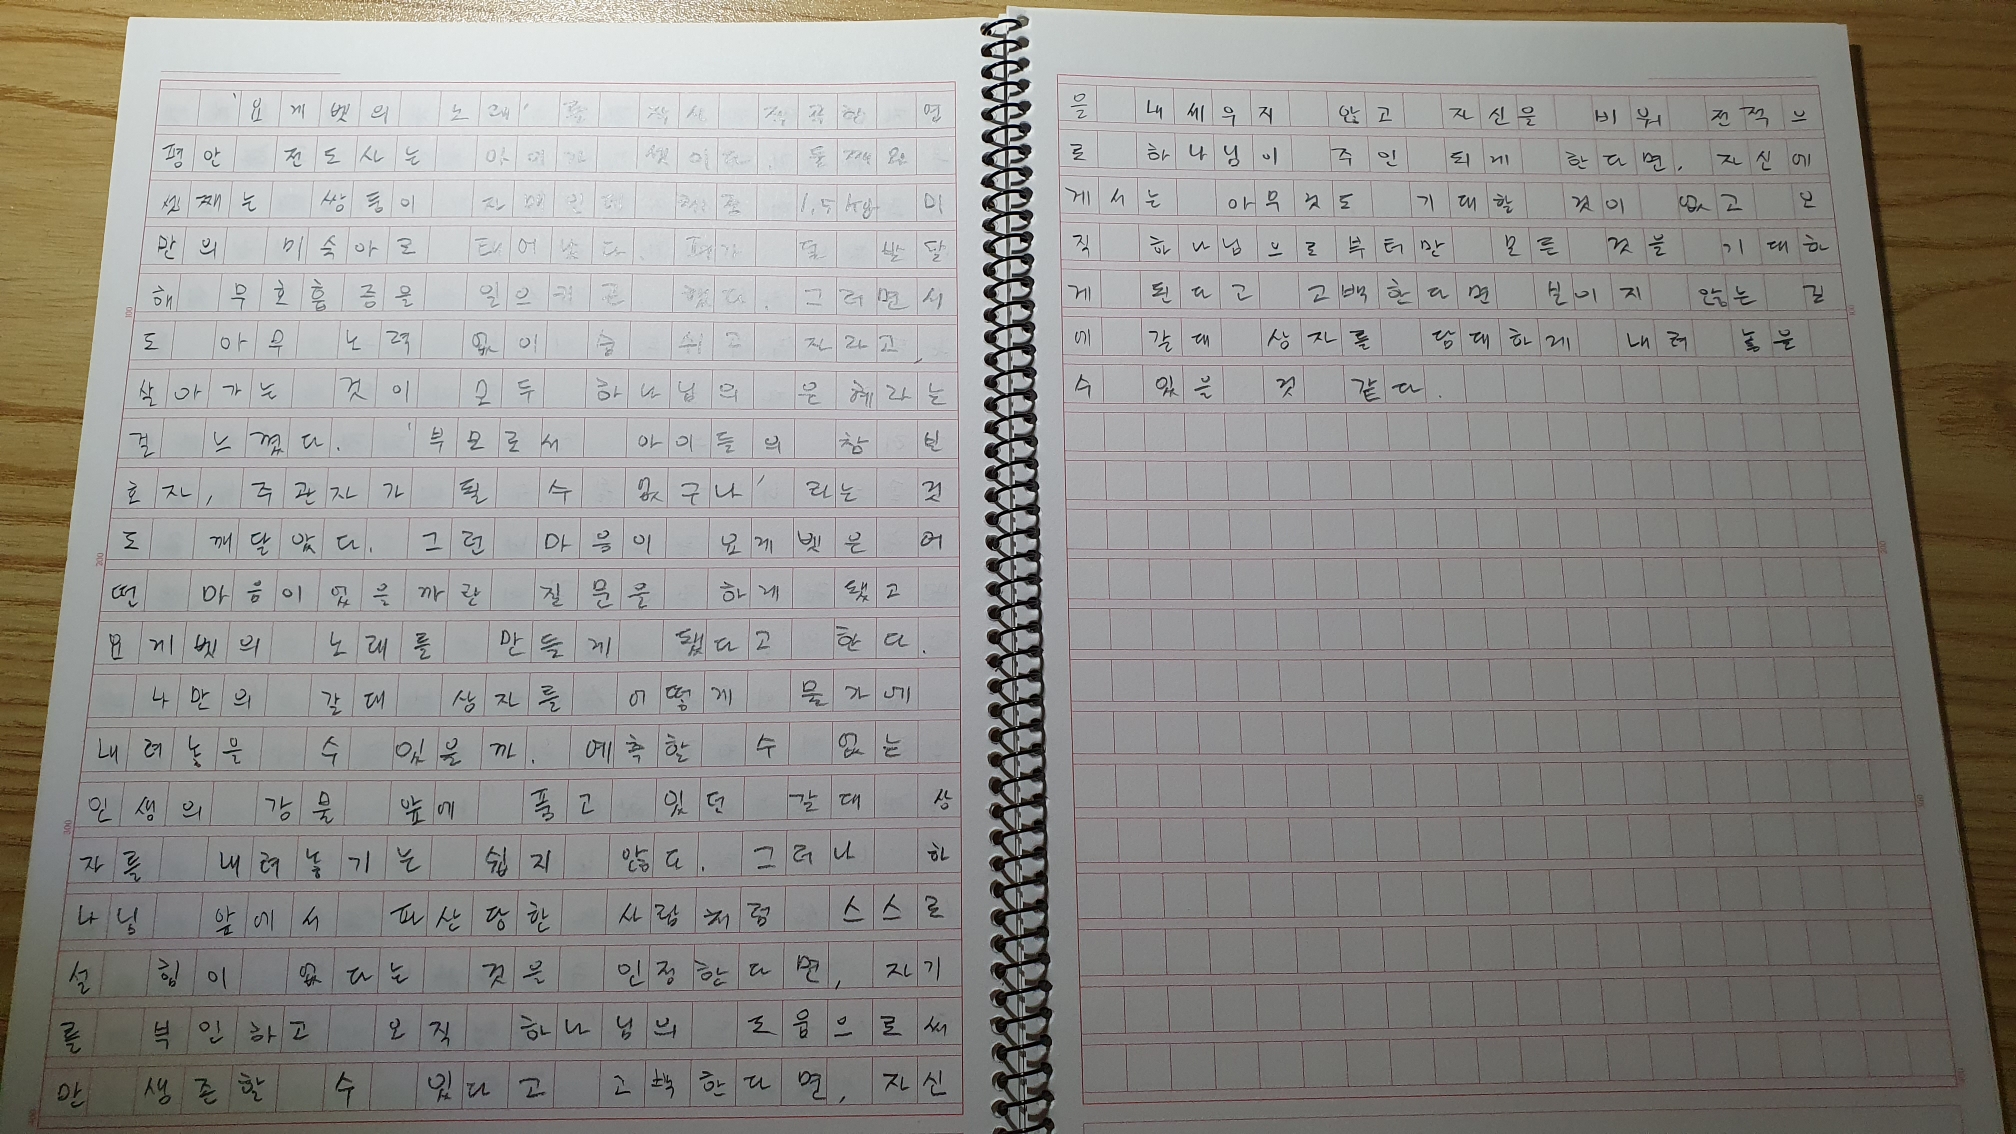 '요게벳의 노래'를 작사 작곡한 염
평안 전도사는 아이가 셋이다. 둘째와
셋째는 쌍둥이 자매인데 체중 1.5kg 미
만의 미숙아로 태어났다. 폐가 덜 발달
해 무호흡증을 일으키곤 했다. 그러면서
도 아무 노력 없이 숨 쉬고 자라고,
살아가는 것이 모두 하나님의 은혜라는
걸 느꼈다. '부모로서 아이들의 참 보
호자, 주관자가 될 수 없구나' 라는 것
도 깨달았다. 그런 마음이 요게벳은 어
떤 마음이었을까란 질문을 하게 됐고
요게벳의 노래를 만들게 됐다고 한다.
나만의 갈대 상자를 어떻게 물가에
내려놓을 수 있을까. 예측할 수 없는
인생의 강물 앞에 품고 있던 갈대 상
자를 내려놓기는 쉽지 않다. 그러나 하
나님 앞에서 파산당한 사람처럼 스스로
설 힘이 없다는 것을 인정한다면, 자기
를 부인하고 오직 하나님의 도움으로써
만 생존할 수 있다고 고백한다면, 자신
을 내세우지 않고 자신을 비워 전적으
로 하나님이 주인 되게 한다면, 자신에
게서는 아무것도 기대할 것이 없고 오
직 하나님으로부터만 모든 것을 기대하
게 된다고 고백한다면 보이지 않는 길
에 갈대 상자를 담대하게 내려 놓을
수 있을 것 같다.